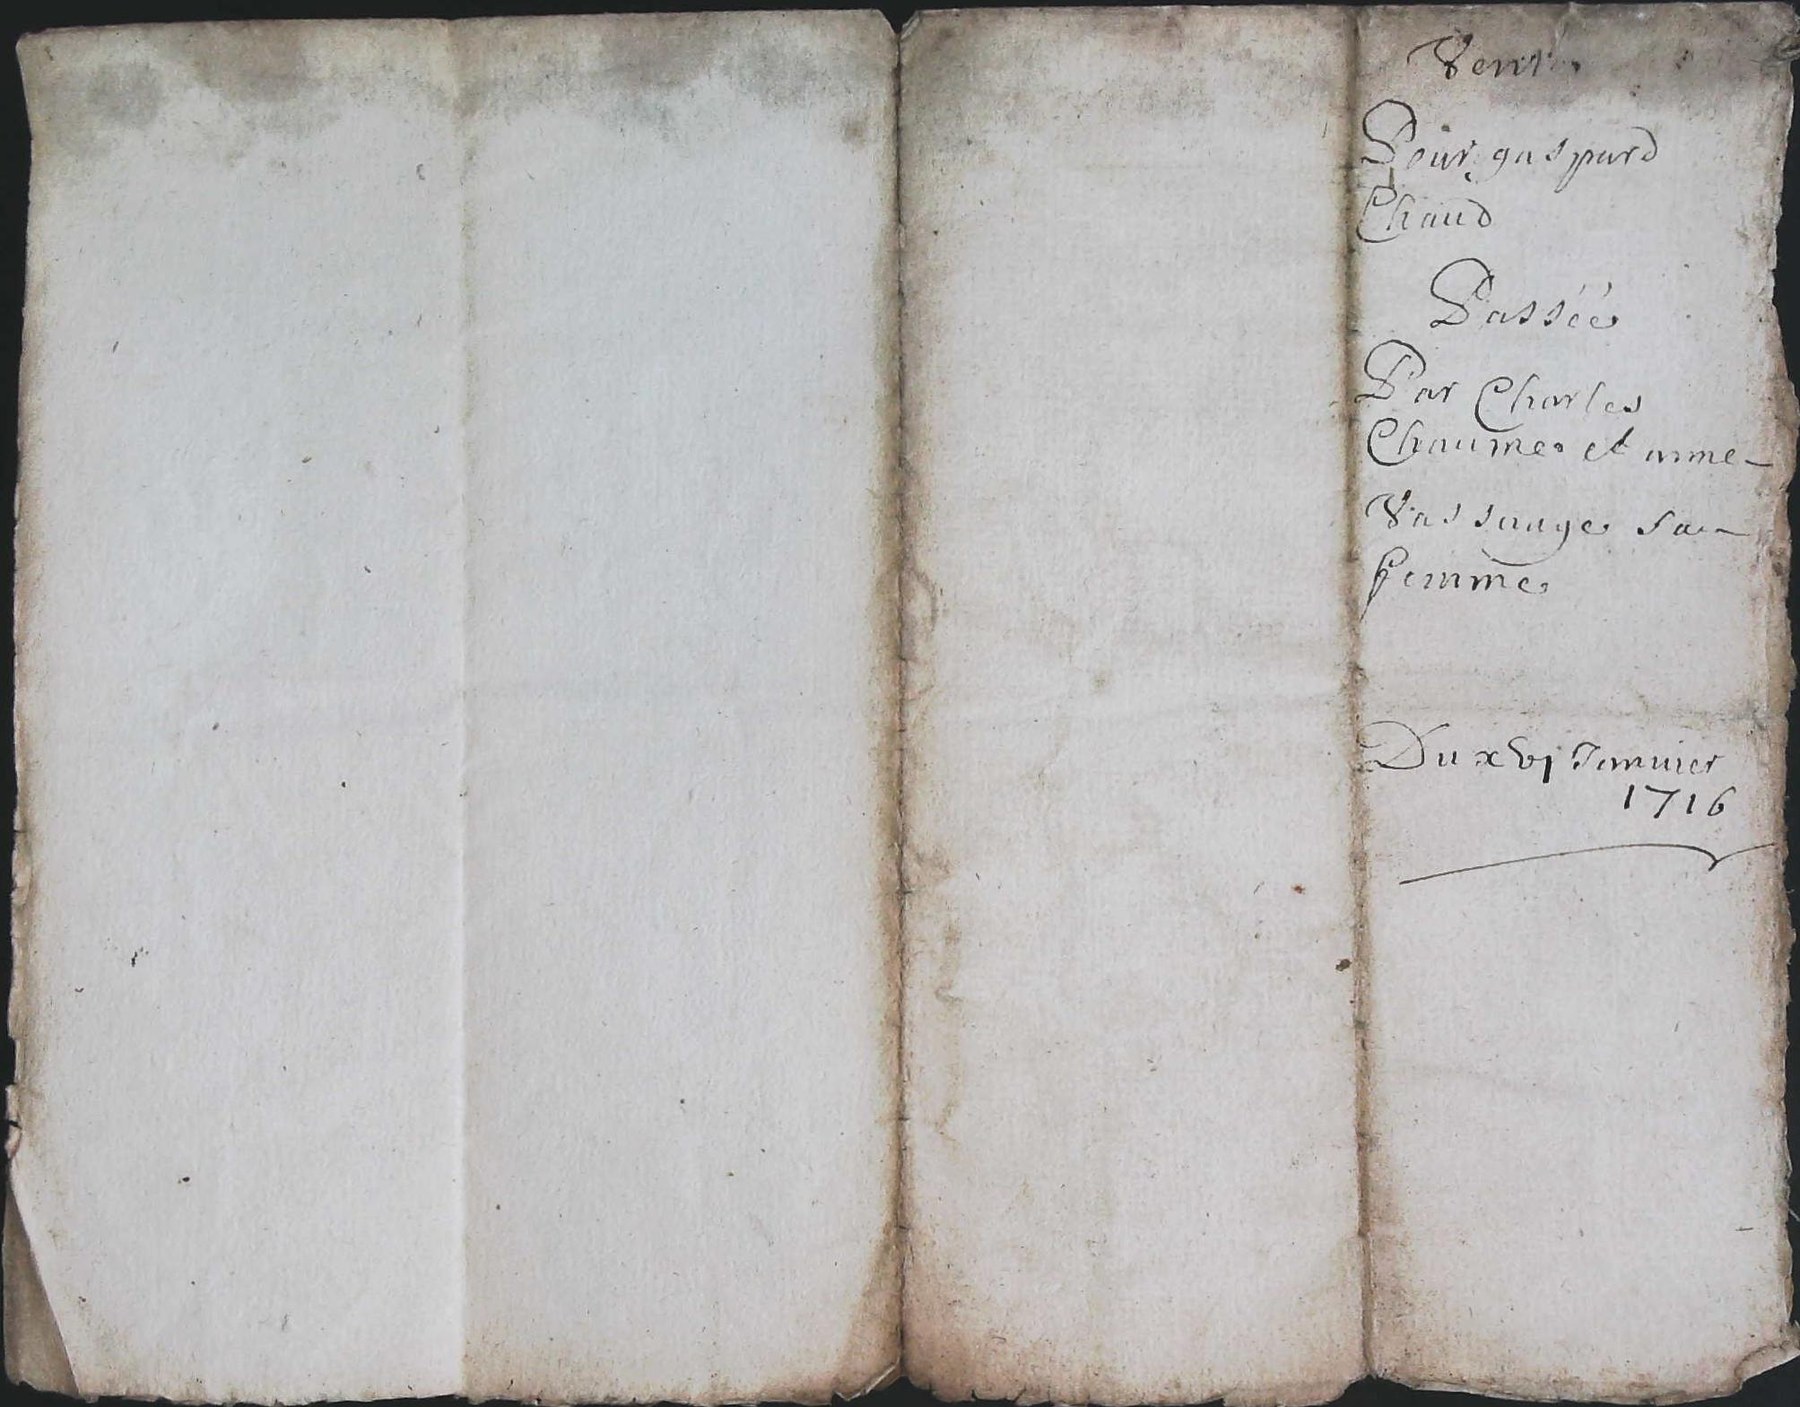 Vente
Pour gaspard
Chaud
Passéé
Par Charles
Chaume et anne
Vassauge sa
femme
Du xvj Januier
1716